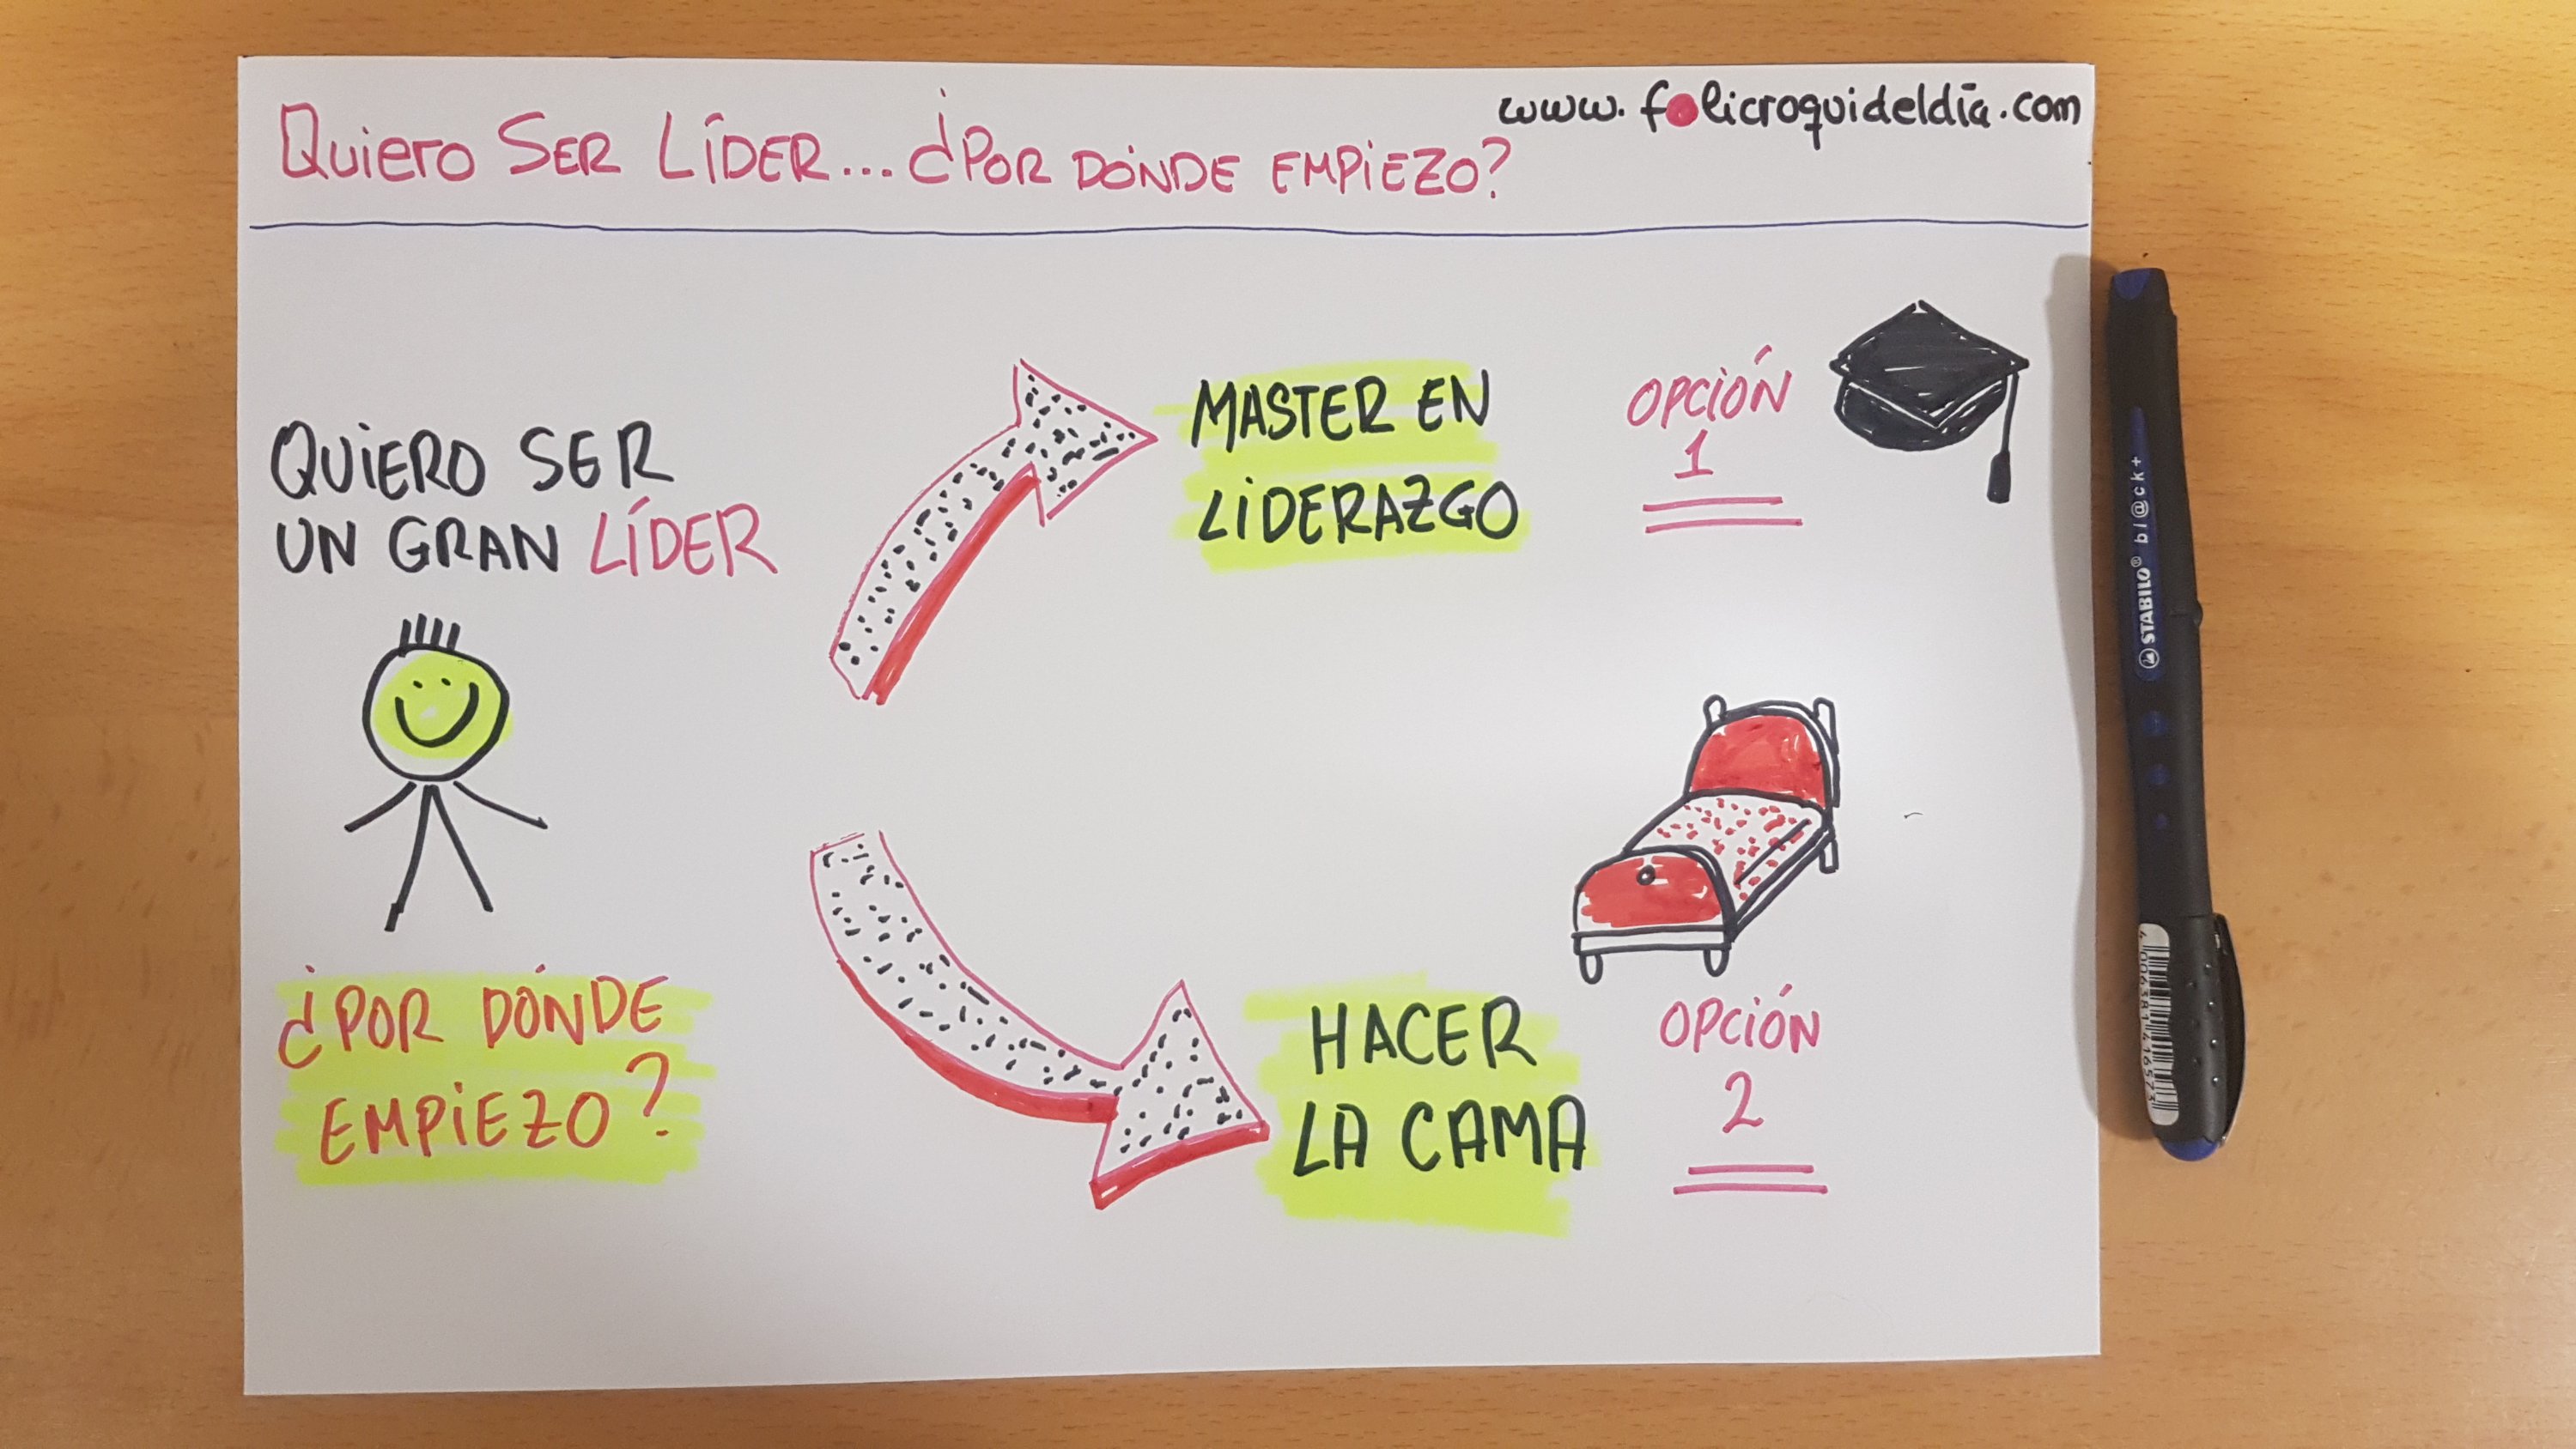 www.folicroquideldía.com
Quiero SER LÍDER... ¿POR DÓNDE EMPIEZO?
QUIERO SER
UN GRAN LÍDER
¿POR DÓNDE
EMPIEZO?
MASTER EN
LIDERAZGO
OPCIÓN
1
HACER
LA CAMA
OPCIÓN
2
STABILO® bl@ck+